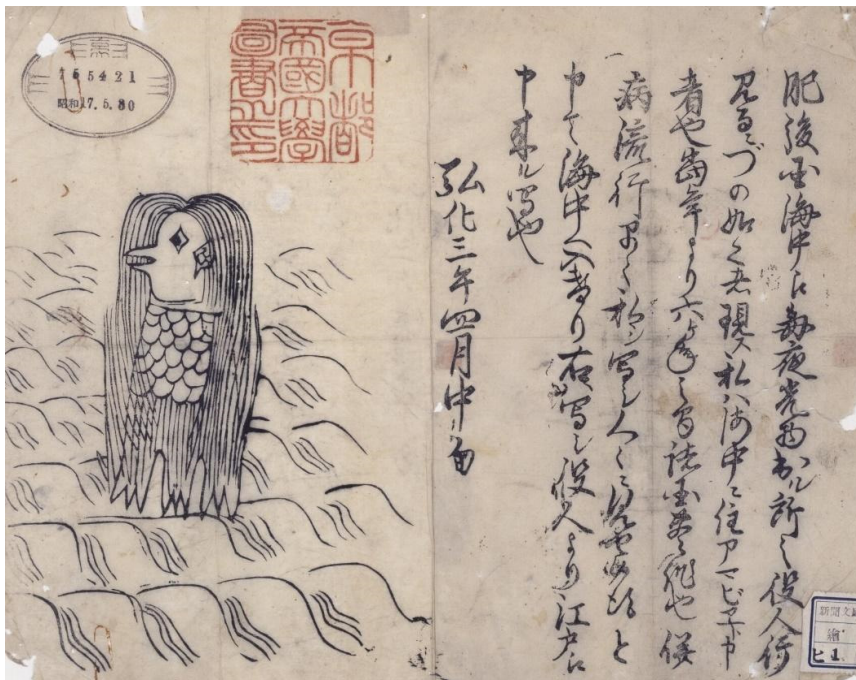 肥後国海中え毎夜光物出ル所之役人行
見るニづの如く者現ス私ハ海中ニ住アマビヱト申
者也當年より六ヶ年之間諸国豊作也併
病流行早々私シ写シ人々ニ見セ候得と
申て海中へ入けり右写シ役人より江戸え
申来ル写也
弘化三年四月中旬
京都
帝國大學
圖書之印
昭和17.5.30
繪
ヒ1